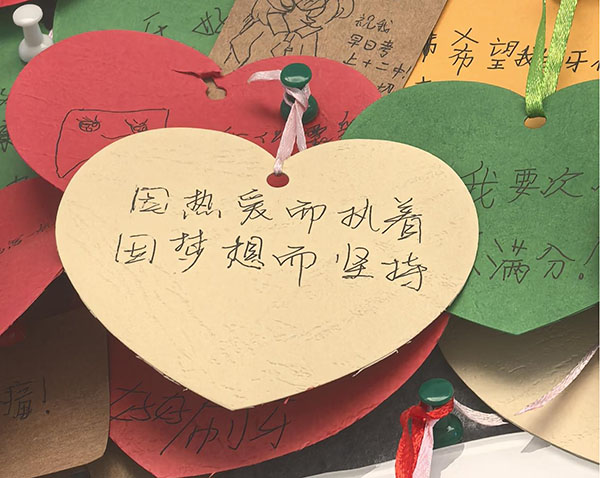 祝我
早日考
上十二中
一切
希望我
牙
因热爱而执着
因梦想而坚持
我要次
满分!
福!
好好刷牙